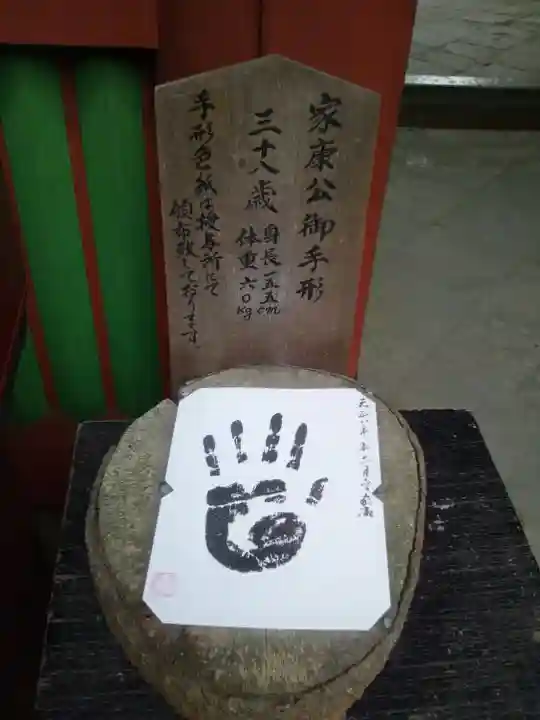 家康公御手形
三十八歳
身長一五五cm
体重六〇kg
手形色紙は授与所にて
頒布致しております。